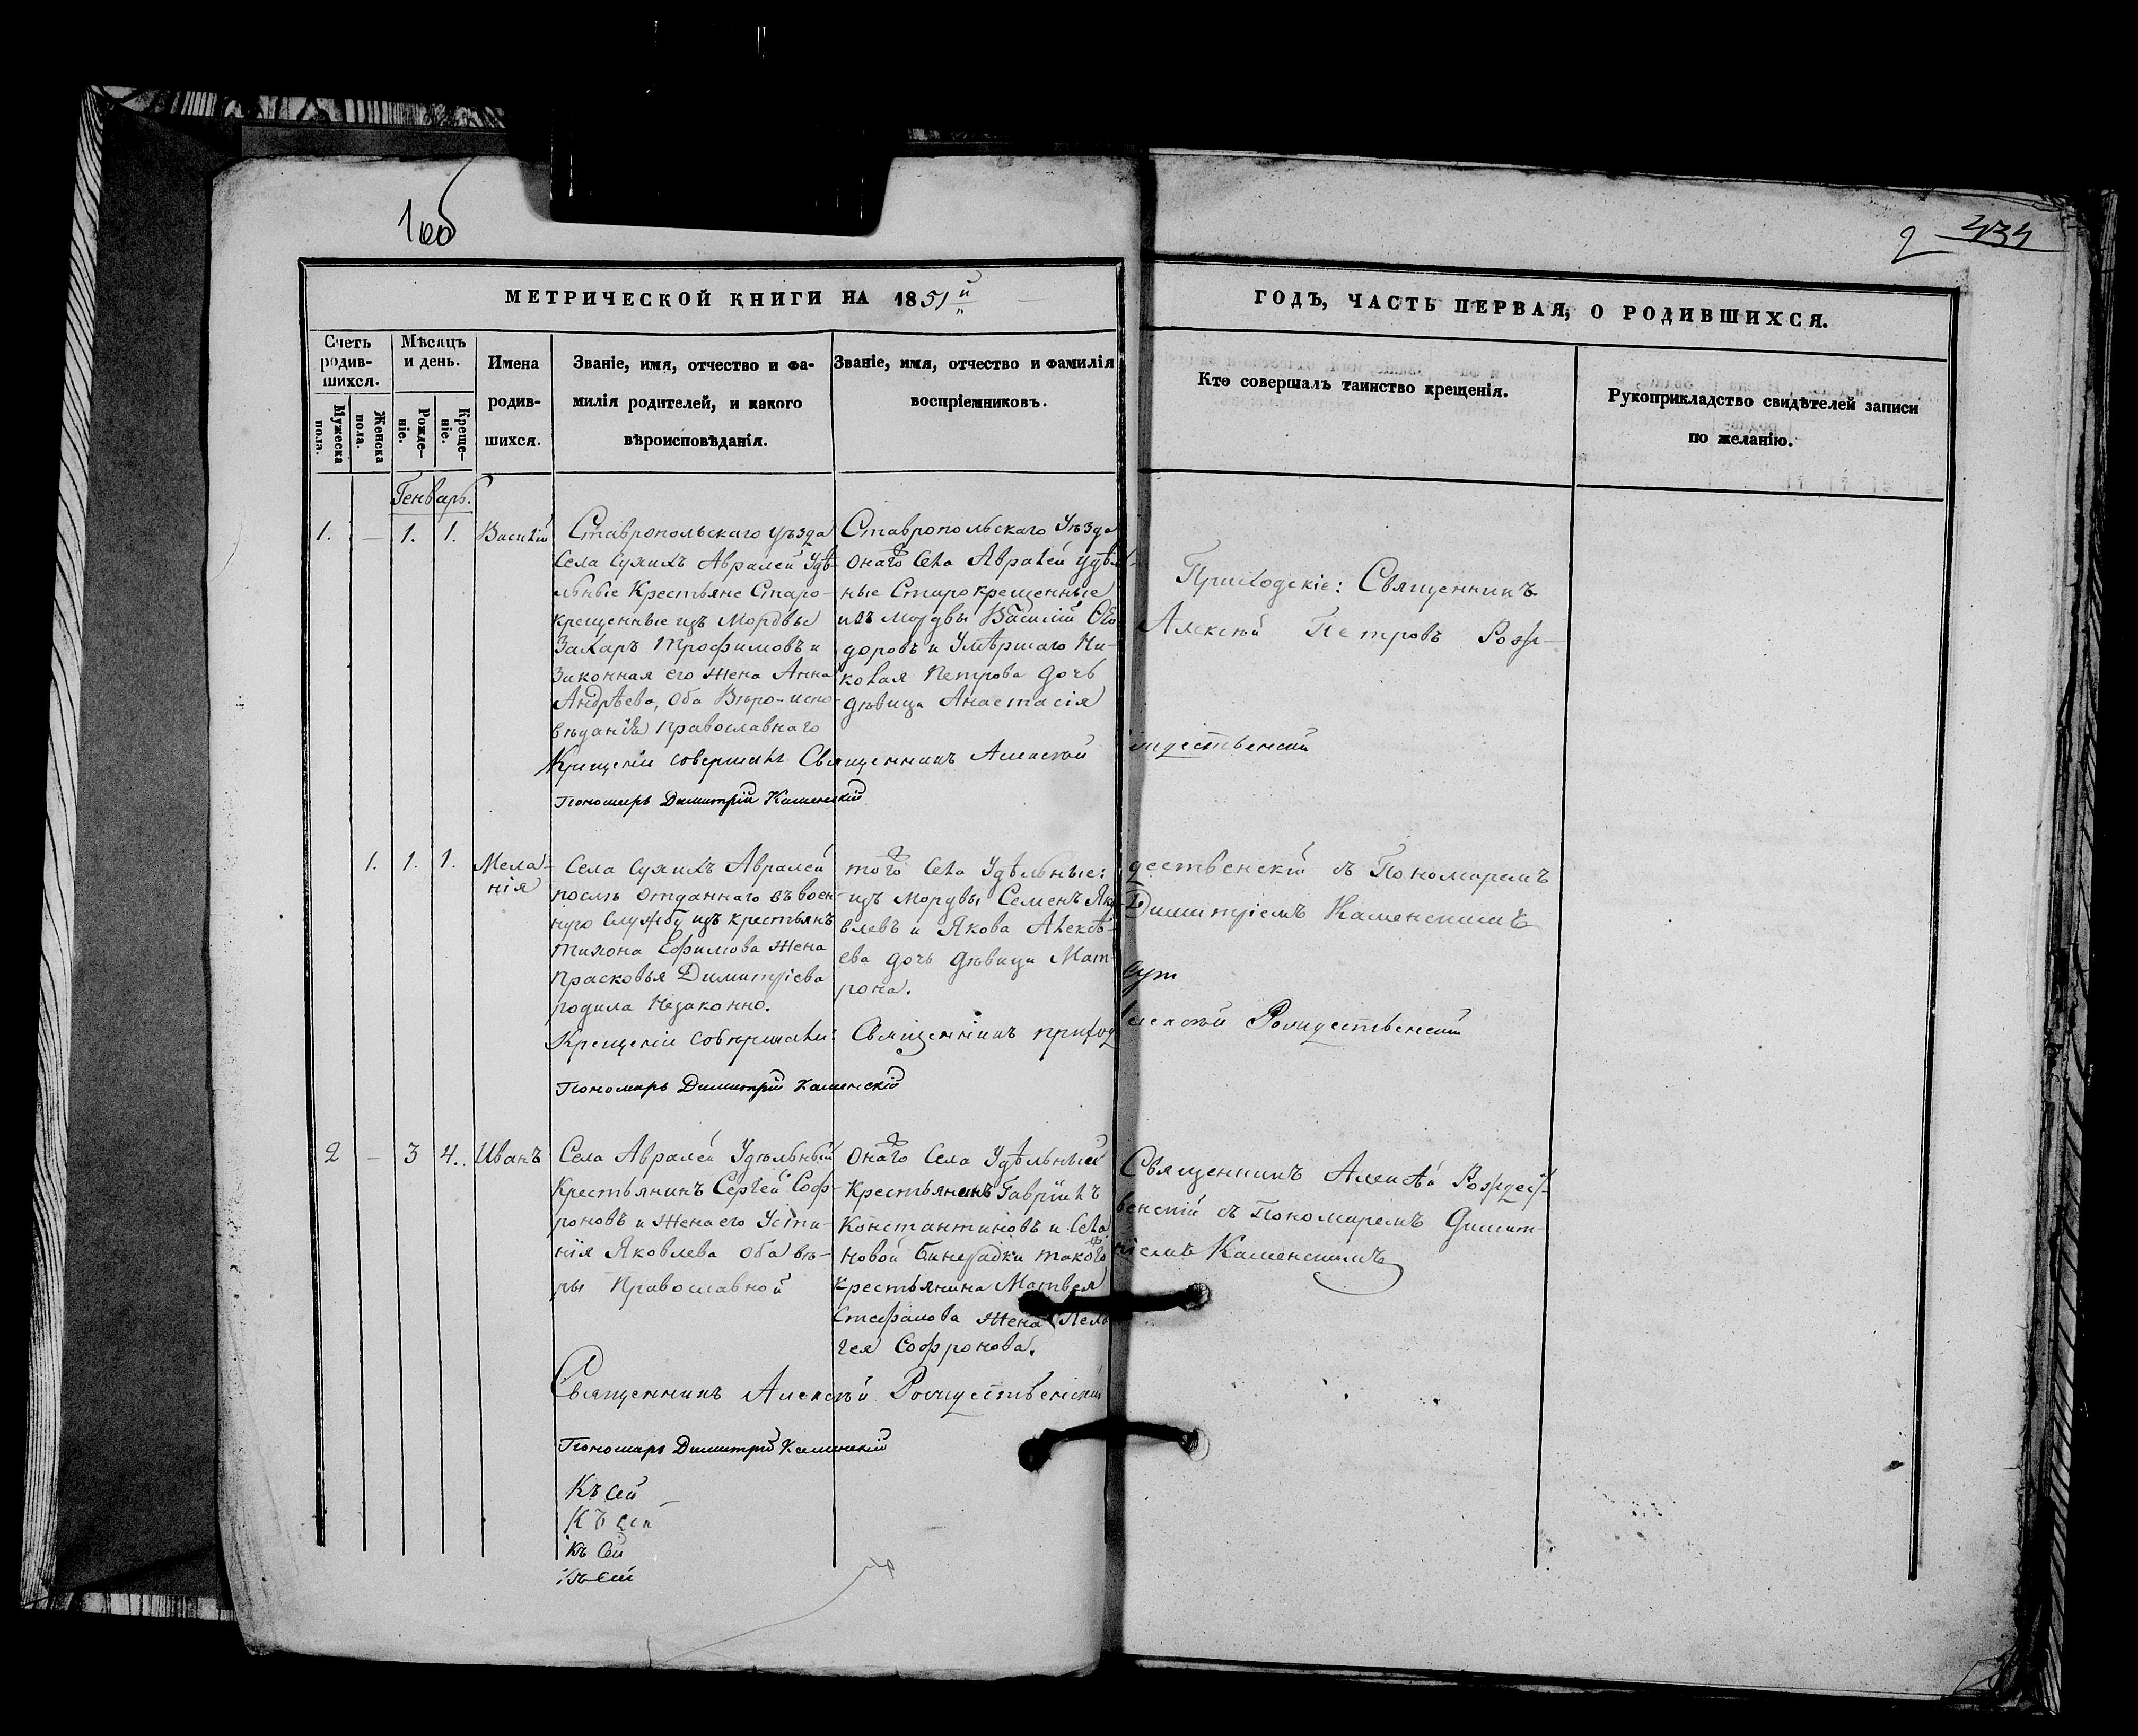 1об
2 434
МЕТРИЧЕСКОЙ КНИГИ НА 1851й
ГОДЪ, ЧАСТЬ ПЕРВАЯ, О РОДИВШИХСЯ.
Счетъ родив-
шихся.
Мужеска пола.
Женска пола.
Мѣсяцъ и день.
Рожде-
ніе.
Креще-
ніе.
Имена
родив-
шихся.
Званіе, имя, отчество и фа-
милія родителей, и какого
вѣроисповѣданія.
Званіе, имя, отчество и фамилія
воспріемниковъ.
Кто совершалъ таинство крещенія.
Рукоприкладство свидѣтелей записи
по желанію.
Генварь.
1. — 1. 1. Василій
Ставропольскаго уѣзда
Села Сухихъ Авралей Удѣ-
льные Крестьяне Старо-
крещенные изъ Мордвы
Захаръ Трофимовъ и
Законная его жена Анна
Андрѣева, оба Вѣро-испо-
вѣданія Православнаго
Ставропольскаго Уѣзда
онаго Села Авралей Удѣл-
ные Старокрещенные
изъ мордвы Василій Ѳео
доровъ и Умѣршаго Ни-
колая Петрова дочь
дѣвица Анастасія
Приходскіе: Священникъ
Алексѣй Петровъ Рож-
Крещеніе совершилъ Священникъ Алексѣй
ждественскій
Пономарь Димитрій Каменскій
1. 1. 1. Мела-
нія
Села Сухихъ Авралей
послѣ отданнаго въ воен-
ную Службу изъ крестьянъ
Тихона Ефимова жена
Прасковья Димитріева
родила Незаконно.
того Села Удѣльные:
изъ мордвы Семенъ Яко
влевъ и Якова Алексѣ-
ева дочь дѣвица Мат-
рона.
дественскій съ Пономаремъ
Димитріемъ Каменскимъ
Крещеніе совершали: Священникъ приход
лексѣй Рождественскій
Пономарь Димитрій Каменскій
2 — 3 4. Иванъ
Села Авралей Удѣльный
Крестьянинъ Сергей Соф-
роновъ и жена его Усти-
нія Яковлева оба вѣ-
ры Православной
Онаго Села Удѣльный
Крестьянинъ Гавріилъ
Константиновъ и Села
Новой Бинерадки такого
крестьянина Матвея
Стефанова жена Пела
гея Софронова.
Священникъ Алексѣй Рождест-
венскій съ Пономаремъ Димит-
ріемъ Каменскимъ
Священникъ Алексѣй Рождественскій
Пономарь Димитрій Каменскій
Къ сей
Къ сей
Къ Сей
Къ Сей